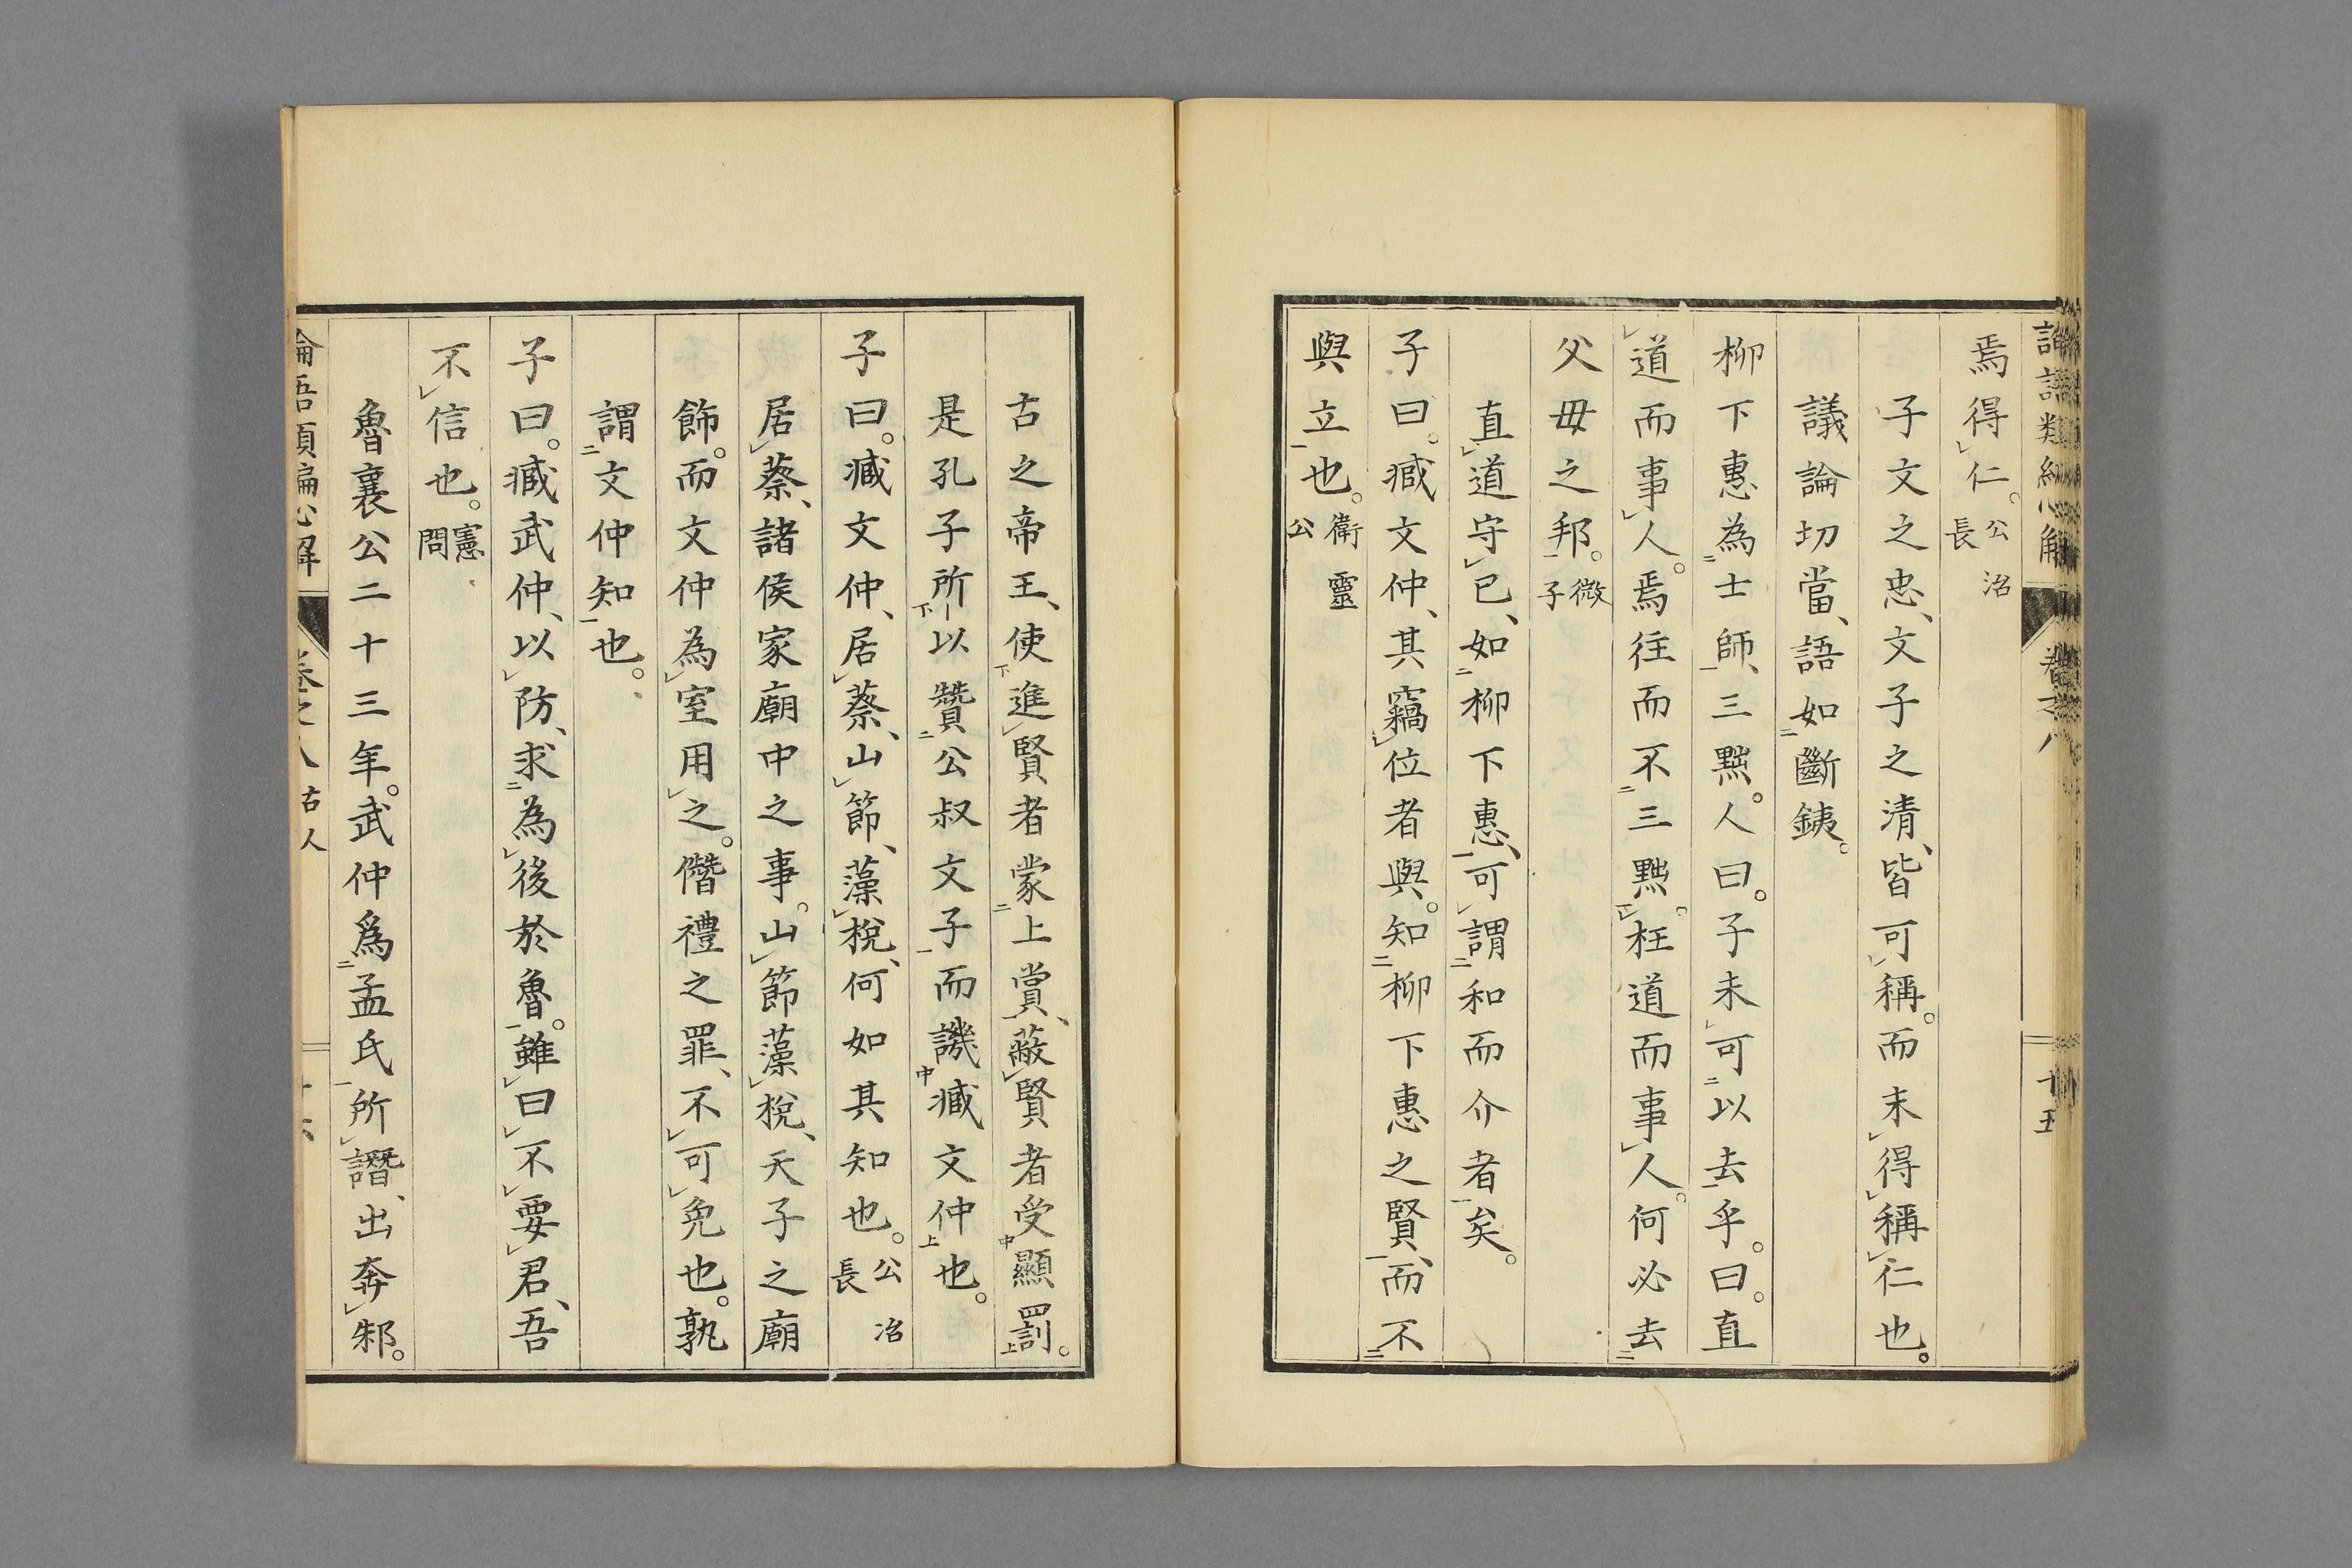 論語類編心解 卷之八 十五
焉得仁。公冶長
子文之忠、文子之清、皆可稱。而未得稱仁也。
議論切當、語如斷銕。
柳下惠為士師、三黜。人曰。子未可以去乎。曰。直
道而事人。焉往而不三黜。枉道而事人。何必去
父母之邦。微子
直道守已、如柳下惠、可謂和而介者矣。
子曰。臧文仲、其竊位者與。知柳下惠之賢、而不
與立也。衛靈公
古之帝王、使進賢者蒙上賞、蔽賢者受顯罰。
是孔子所以贊公叔文子而譏臧文仲也。
子曰。臧文仲、居蔡、山節、藻梲、何如其知也。公冶長
居蔡、諸侯家廟中之事。山節藻梲、天子之廟
飾。而文仲為室用之。僭禮之罪、不可免也。孰
謂文仲知也。
子曰。臧武仲、以防、求為後於魯。雖曰不要君、吾
不信也。憲問
魯襄公二十三年。武仲爲孟氏所譖、出奔邾。
論語類編心解 卷之八 古人 十六